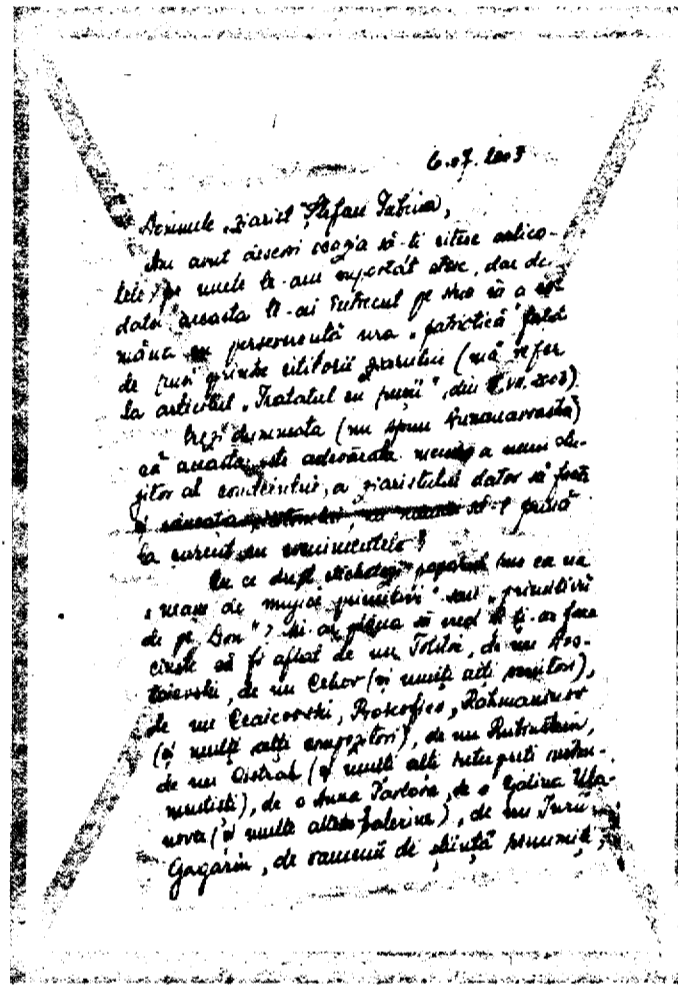 6.07.2003
Domnule "ziarist" Ștefan
Am avut deseori ocazia să-ți citesc artico-
lele, pe unele le-am suportat otse, dar de
data aceasta te-ai întrecut pe tine în a
cu perseverență ura "patriotică" față
de ruși printre cititorii ziarului (mă refer
la articolul "Tratatul cu rușii", din VII.2003).
Crezi dumneata (nu spun dumneavoastră)
că aceasta este adevărata menire a unui
al condeiului, a ziaristului dator să
și să-l pună
la curent cu evenimentele?
Cu ce drept etichetezi poporul rus ca un
"neam de mujici primitivi" sau "primitivii
de pe Don"? Mi-ar plăcea să cred că ți-ar face
cinste să fi aflat de un Tolstoi, de un Dos-
toievski, de un Cehov (și mulți alți scriitori),
de un Ceaicovski, Prokofiev, Rahmaninov
(și mulți alți compozitori), de un Rubinstein,
de un Oistrah (și mulți alți interpreți instru-
mentiști), de o Anna Pavlova, de o Galina Ula-
nova (și multe alte balerine), de un Iurii
Gagarin, de oameni de știință renumiți,